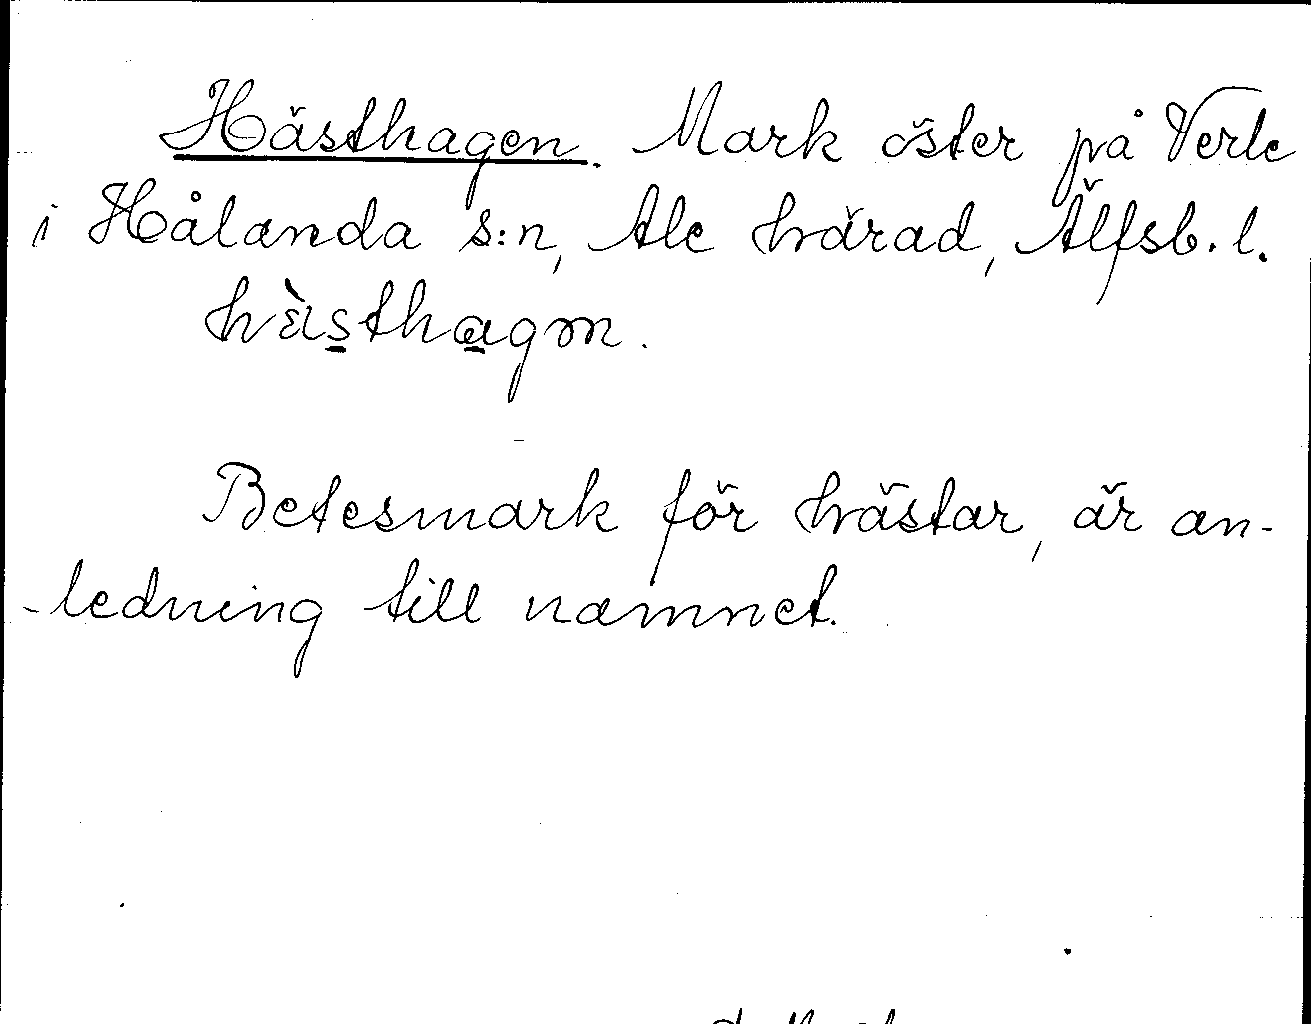 Hästhagen. Mark öster på Verle
i Hålanda s:n, Ale härad, Älfsb. l.
hàsthagm.
Betesmark för hästar, är an-
-ledning till namnet.